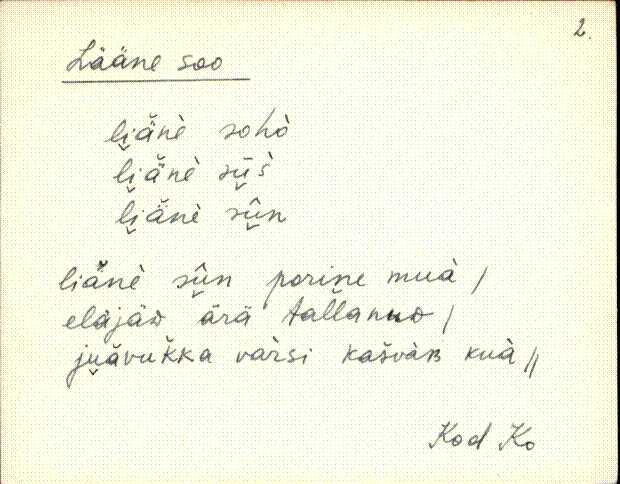 2.
Lääne soo
li̯ä̆nè sohò
li̯ä̆nè sū̯s̀
li̯ä̆nè sû̯n
liä̆nè sû̯n porine muà /
elàjàᴅ ärä tallannᴅ /
ju̯ăvuk̆ka vàrsi kašvàʙ kuà //
Kod Ko